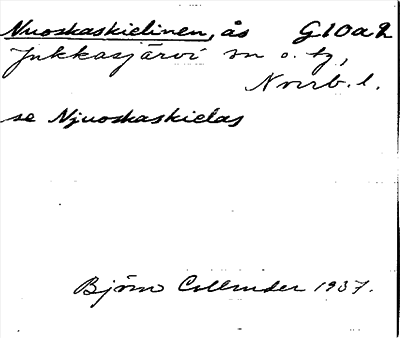 Nuoskaskielinen, ås G10a2
Jukkasjärvi sn o. tg,
Norrb. l.
se Njuoskaskielas
Björn Collinder 1937.